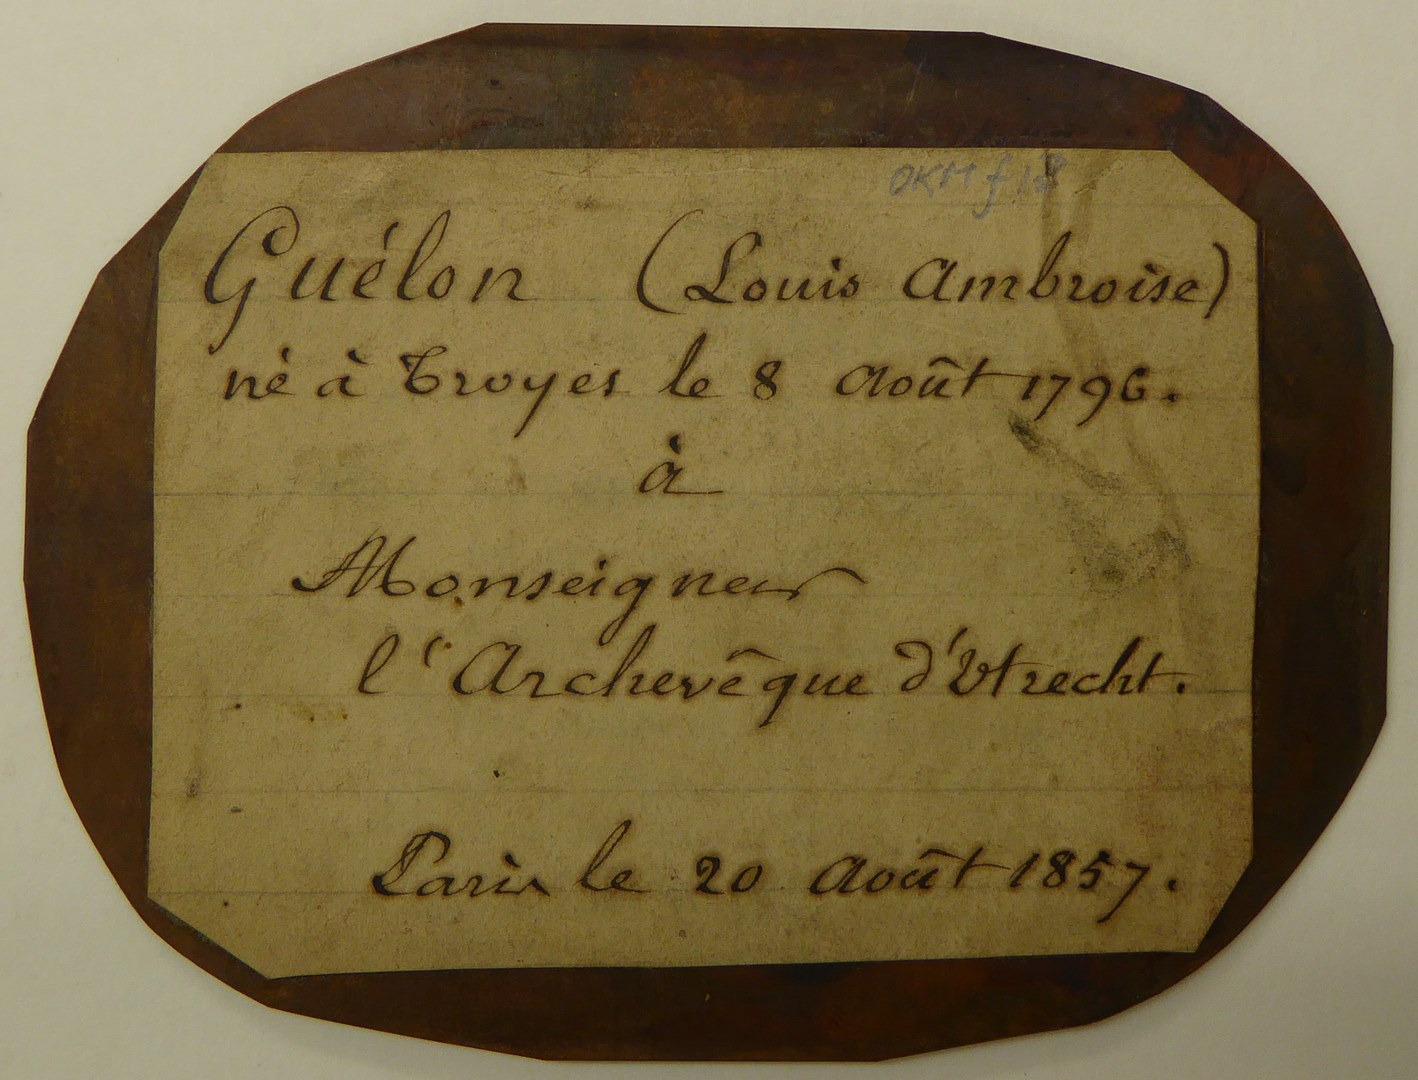 OKM f 18
Guélon (Louis Ambroise)
né à Troyes le 8 Août 1796.
à
Monseigneur
l'Archevêque d'Utrecht.
Paris le 20 Août 1857.